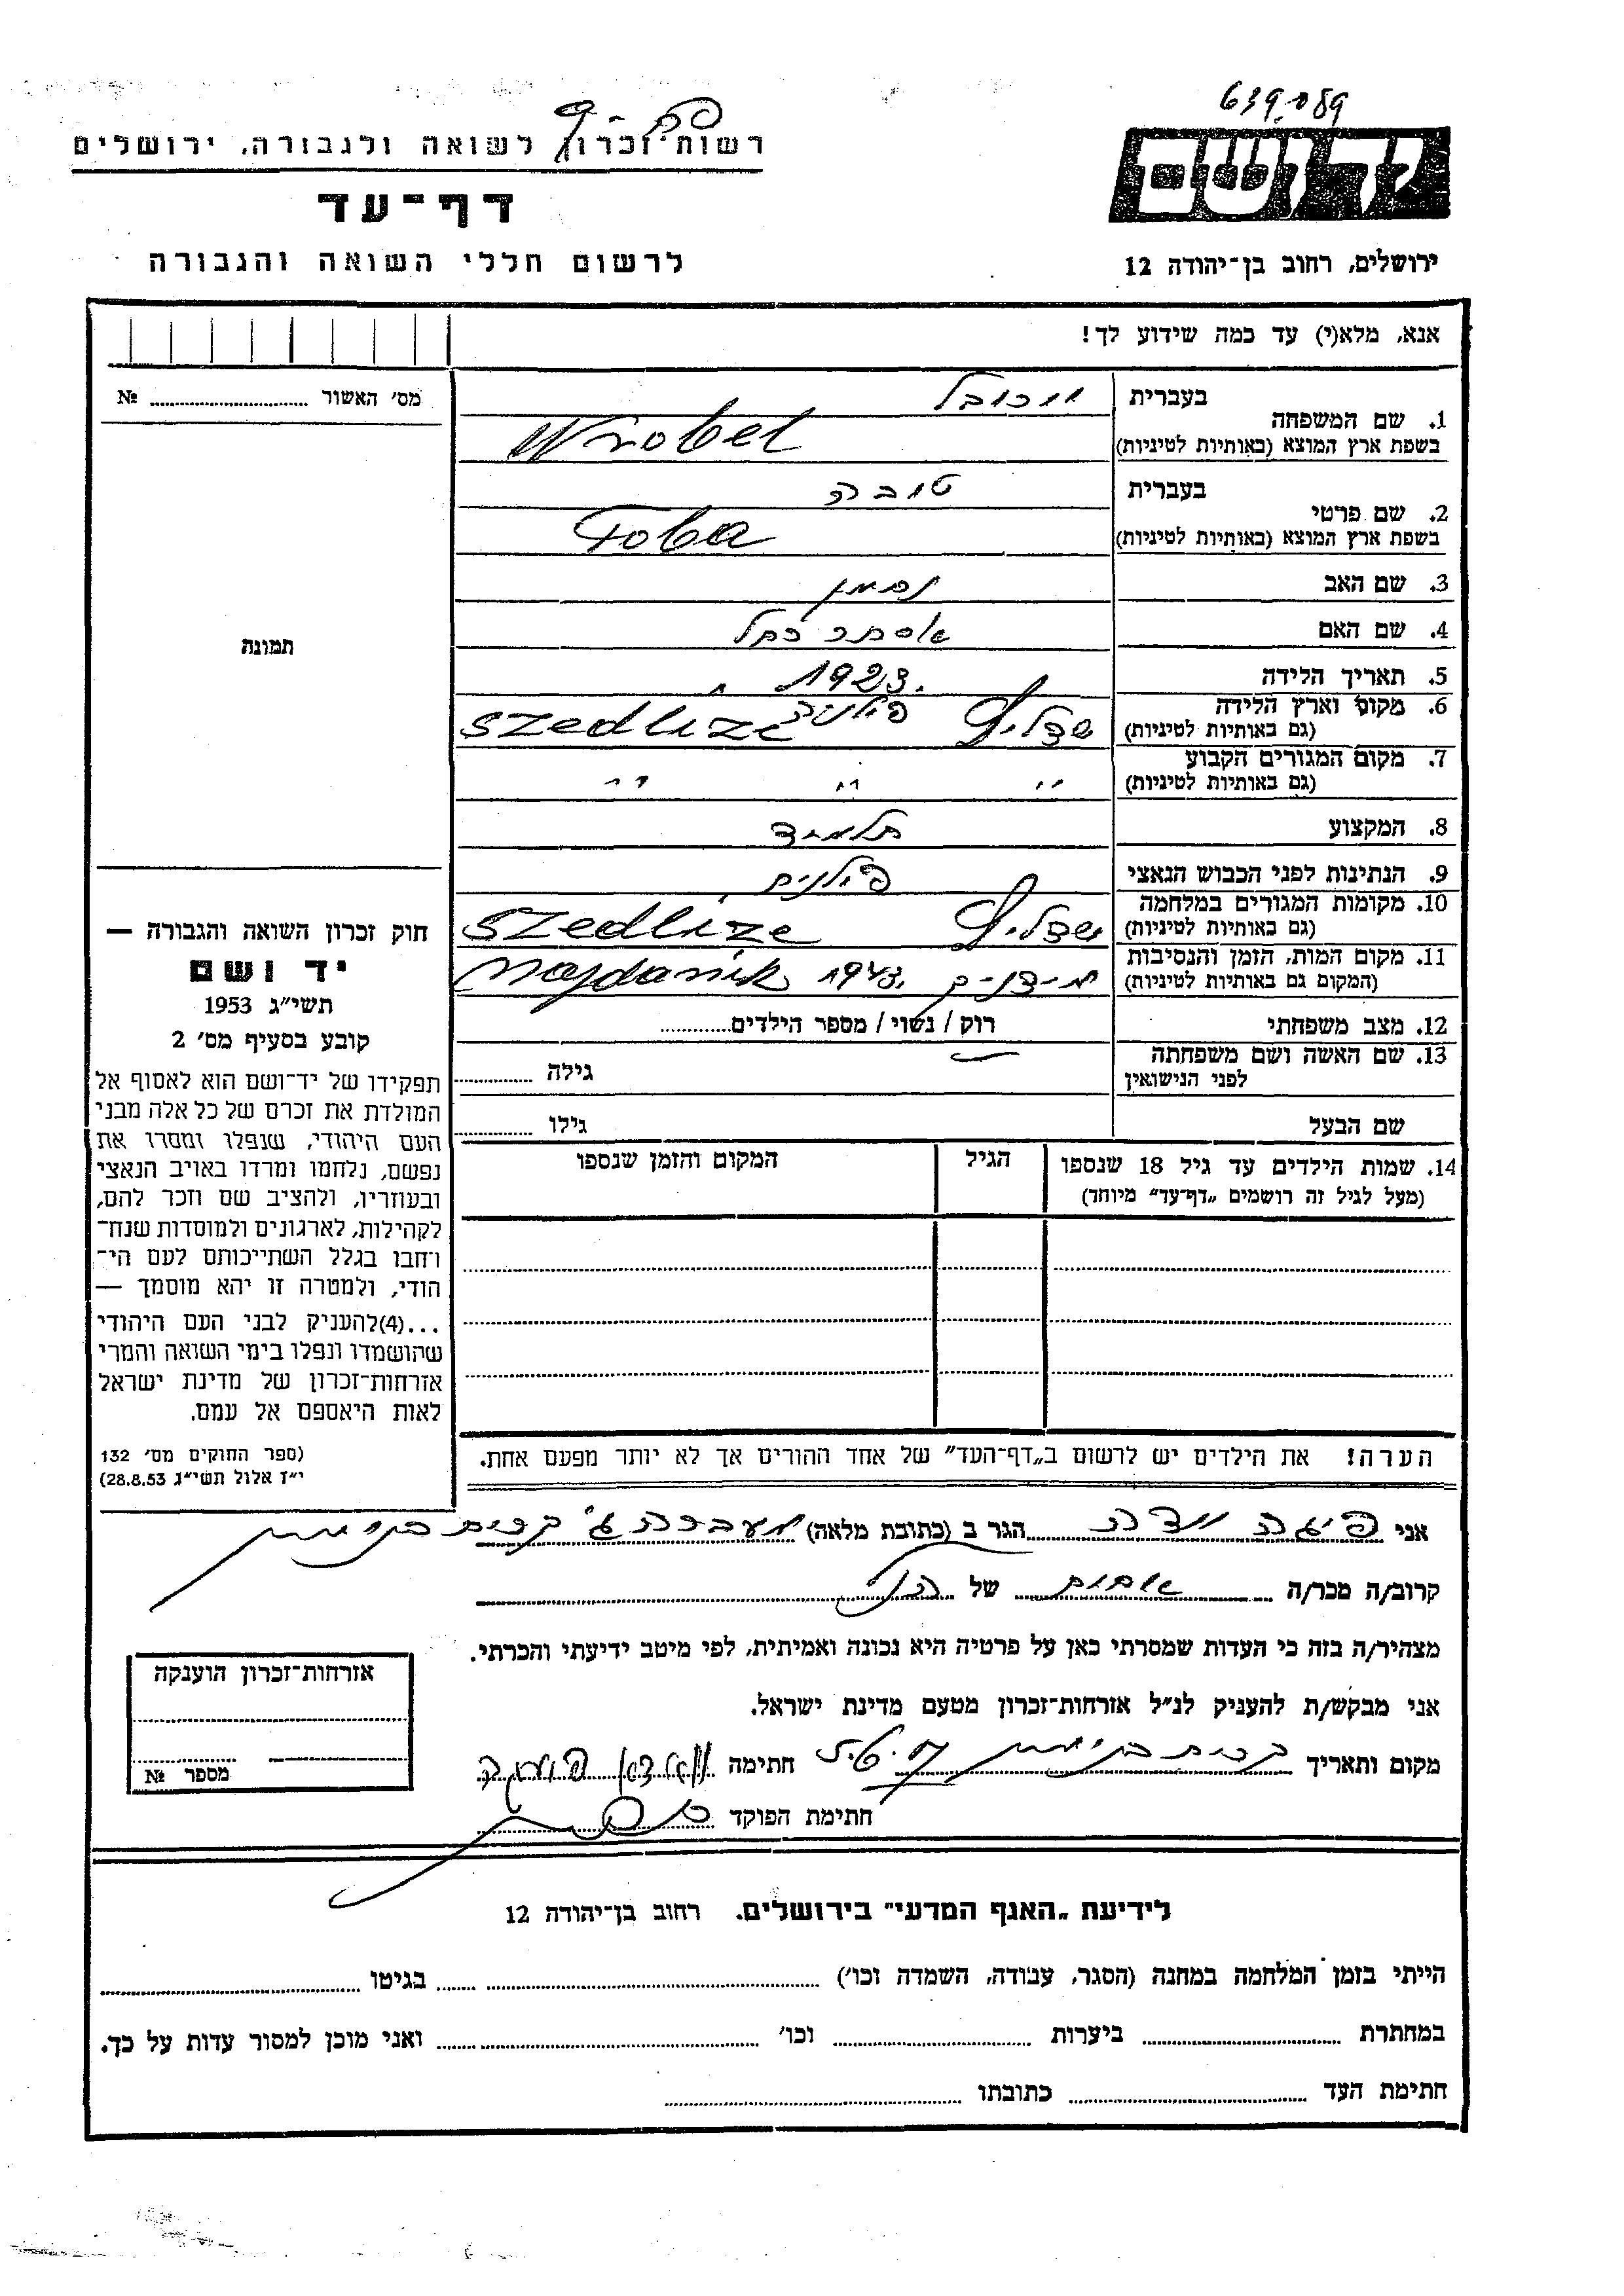 639089
רשות־זכרון לשואה ולגבורה, ירושלים
דף־עד
לרשום חללי השואה והגבורה
יד ושם
ירושלים, רחוב בן־יהודה 12
אנא, מלא(י) עד כמה שידוע לך!
מס׳ האשור № ........
תמונה
1. שם המשפחה
בעברית ורובל
בשפת ארץ המוצא (באותיות לטיניות) Wrobel
2. שם פרטי
בעברית טובה
בשפת ארץ המוצא (באותיות לטיניות) Toba
3. שם האב נחמן
4. שם האם אסתר רחל
5. תאריך הלידה 1923.
6. מקום וארץ הלידה
(גם באותיות לטיניות) שדליץ פולניה Szedlize
7. מקום המגורים הקבוע
(גם באותיות לטיניות) " " "
8. המקצוע תלמיד
9. הנתינות לפני הכבוש הנאצי פולנית
10. מקומות המגורים במלחמה
(גם באותיות לטיניות) שדליץ Szedlize
11. מקום המות, הזמן והנסיבות
(המקום גם באותיות לטיניות) מידניק 1943. Majdanik
12. מצב משפחתי רוק / נשוי / מספר הילדים........
13. שם האשה ושם משפחתה
לפני הנישואין גילה ........
שם הבעל גילו ........
14. שמות הילדים עד גיל 18 שנספו
(מעל לגיל זה רושמים „דף־עד״ מיוחד)
הגיל
המקום והזמן שנספו
הערה! את הילדים יש לרשום ב„דף־העד״ של אחד ההורים אך לא יותר מפעם אחת.
חוק זכרון השואה והגבורה —
יד ושם
תשי״ג 1953
קובע בסעיף מס׳ 2
תפקידו של יד־ושם הוא לאסוף אל
המולדת את זכרם של כל אלה מבני
העם היהודי, שנפלו ומסרו את
נפשם, נלחמו ומרדו באויב הנאצי
ובעוזריו, ולהציב שם וזכר להם,
לקהילות, לארגונים ולמוסדות שנח־
רבו בגלל השתייכותם לעם הי־
הודי, ולמטרה זו יהא מוסמך —
...(4) להעניק לבני העם היהודי
שהושמדו ונפלו בימי השואה והמרי
אזרחות־זכרון של מדינת ישראל
לאות היאספם אל עמם.
(ספר החוקים מס׳ 132
י״ז אלול תשי״ג 28.8.53)
אני ........ הגר ב (כתובת מלאה) מעברה ג׳ קרית בנימין
קרוב/ה מכר/ה אחות של הנ״ל
מצהיר/ה בזה כי העדות שמסרתי כאן על פרטיה היא נכונה ואמיתית, לפי מיטב ידיעתי והכרתי.
אני מבקש/ת להעניק לנ״ל אזרחות־זכרון מטעם מדינת ישראל.
מקום ותאריך קרית בנימין חתימה
חתימת הפוקד
אזרחות־זכרון הוענקה
מספר №
לידיעת „האגף המדעי״ בירושלים. רחוב בן־יהודה 12
הייתי בזמן המלחמה במחנה (הסגר, עבודה, השמדה וכו׳) ........ בגיטו ........
במחתרת ........ ביערות ........ וכו׳ ........ ואני מוכן למסור עדות על כך.
חתימת העד ........ כתובתו ........